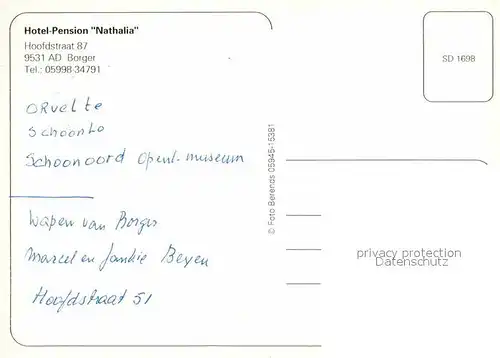 Hotel-Pension "Nathalia"
Hoofdstraat 87
9531 AD Borger
Tel.: 05998-34791
SD 1698
ORvelte
Schoonlo
Schoonoord openl. museum
© Foto Berends 05945-15381
Wapen van Borger
Marcel en Beyen
Hoofdstraat 51
privacy protection
Datenschutz